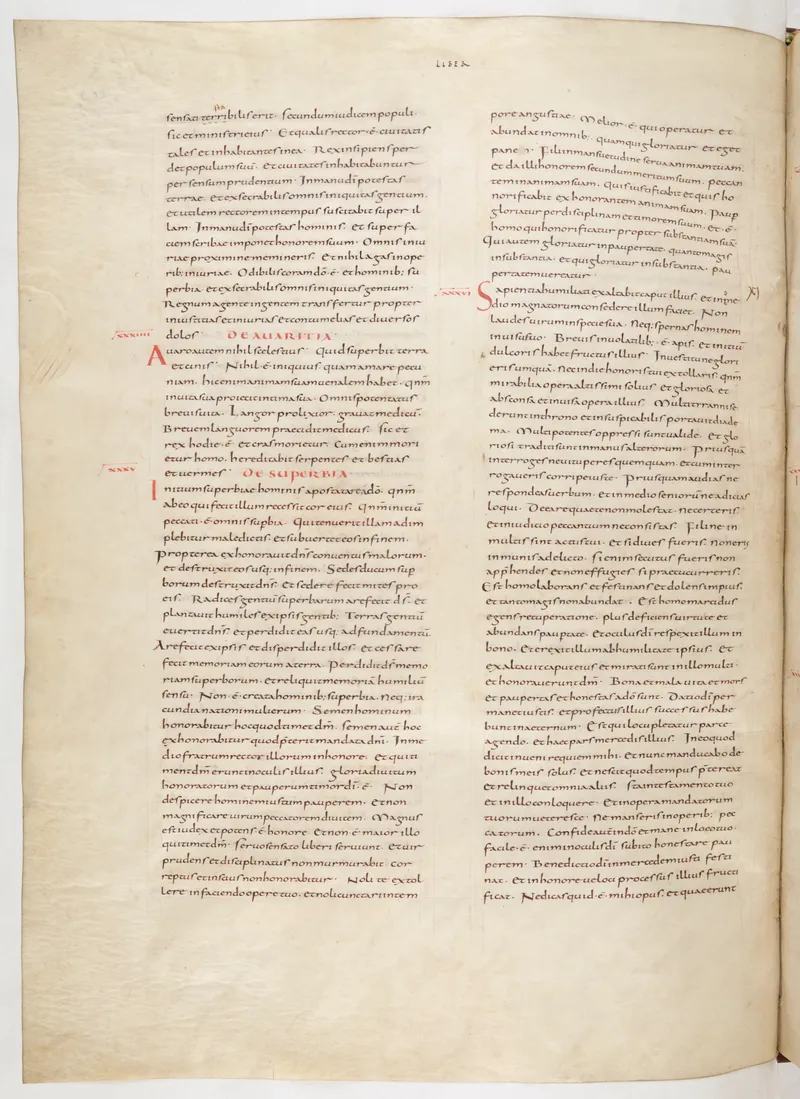 LIBER
sensati terribilis erit. secundum iudicem populi
sic et ministeri eius. Et qualis rector .ē. ciuitatis
tales et inhabitantes in ea. Rex insipiens per
det populum suū. et ciuitates inhabitabuntur
per sensum prudentum. In manu dī potestas
terrae. et execrabilis omnis iniquitas gentium.
et utilem rectorem in tempus suscitabit super il
lam. In manu dī potestas hominis. et super fa
ciem scribae imponet honorem suum. Omnis iniu
riae proximi ne memineris. Et nihil agas in ope
rib; iniuriae. Odibilis coram dō .ē. et hominib; su
perbia. et execrabilis omnis iniquitas gentium.
Regnum a gente in gentem transfertur propter
iniustitias et iniurias et contumelias et diuersos
xxxiiii dolos. DE AUARITIA
Auaro autem nihil scelestius. Quid superbit terra
et cinis. Nihil .ē. iniquius quam amare pecu
niam. hic enim animam suam uenalem habet. qnm̄
in uita sua proiecit intima sua. Omnis potentatus
breui uita. Langor prolixior. grauat medicū.
Breuem languorem praecidit medicus. sic et
rex hodie .ē. et cras morietur. Cum enim mori
etur homo. hereditabit serpentes et bestias
xxxv et uermes. DE SUPERBIA
Initium superbiae hominis apostatare a dō. qnm̄
ab eo qui fecit illum recessit cor eius. Qnm̄ initiū
peccati .ē. omnis supbia. Qui tenuerit illam adim
plebitur maledictis. et subuertet eos in finem.
Propterea exhonorauit dn̄s conuentus malorum.
et destruxit eos usq; in finem. Sedes ducum sup
borum destruxit dn̄s. Et sedere fecit mites pro
eis. Radices gentiū superbarum arefecit ds̄. et
plantauit humiles ex ipsis gentib; Terras gentiū
euertit dn̄s. et perdidit eas usq; ad fundamentū.
Arefecit ex ipsis et disperdidit illos. et cessare
fecit memoriam eorum a terra. Perdidit ds̄ memo
riam superborum. et reliquit memoriā humiliū
sensu. Non .ē. creata hominib; superbia. neq; ira
cundia nationi mulierum. Semen hominum
honorabitur hoc quod timet dm̄. semen autē hoc
exhonorabitur quod p̄terit mandata dn̄i. In me
dio fratrum rector illorum in honore. et qui ti
ment dm̄ erunt in oculis illius. gloria diuitum
honoratorum et pauperum timor dī .ē. Non
despicere hominem iustum pauperem. et non
magnificare uirum peccatorem diuitem. Magnus
est iudex et potens .ē. honore. Et non .ē. maior illo
qui timet dm̄. seruo sensato liberi seruiunt. et uir
prudens et disciplinatus non murmurabit cor
reptus et inscius non honorabitur. Noli te extol
lere in faciendo opere tuo. et noli cunctari in tem
pore angustiae. Melior .ē. qui operatur et
abundat in omnib; quam qui gloriatur et eget
pane. Fili in mansuetudine serua animam tuam.
et da illi honorem secundum meritum suum. peccan
tem in animam suam. quis iustificabit et quis ho
norificabit exhonorantem animam suam. Paup
gloriatur per disciplinam et timorem suum. et .ē.
homo qui honorificatur propter substantiam suā.
Qui autem gloriatur in paupertate. quanto magis
in substantia. et qui gloriatur in substantia. pau
pertatem uereatur.
xxxvi Sapientia humiliati exaltabit caput illius. et in me
dio magnatorum consedere illum faciet. Non
laudes uirum in specie sua. Neq; spernas hominem
in uisu suo. Breuis in uolatilib; .ē. apis. et initiū
dulcoris habet fructus illius. In uestitu ne glori
eris umquā. nec in die honoris tui extollaris. qnm̄
mirabilia opera altissimi solius. et gloriosa et
absconsa et inuisa opera illius. Multi tyranni se
derunt in throno et insuspicabilis portauit diade
ma. Multi potentes oppressi sunt ualide. Et glo
riosi traditi sunt in manus alterorum. Priusquā
interroges ne uituperes quemquam. et cum inter
rogaueris corripe iuste. Priusquam audias ne
respondeas uerbum. et in medio seniorū ne adicias
loqui. De ea re quae te non molestat. ne certeris.
Et in iudicio peccantium ne consistas. Fili ne in
multis sint actus tui. et si diues fueris. non eris
inmunis a delicto. si enim secutus fueris non
app̄hendes et non effugies si praecucurreris.
Est homo laborans et festinans et dolens impius.
et tanto magis non abundat. Est homo marcidus
egens recuperatione. plus deficiens uirtute et
abundans paup̄tate. et oculus dī respexit illum in
bono. et erexit illum ab humilitate ipsius. Et
exaltauit caput eius et mirati sunt in illo multi.
et honorauerunt dm̄. Bona et mala uita et mors
et paupertas et honestas a dō sunt. Datio dī per
manet iustis. et profectus illius successus habe
bunt in aeternum. Est qui locupletatur parce
agendo. et haec pars mercedis illius. In eo quod
dicit inueni requiem mihi. et nunc manducabo de
bonis meis solus. et nescit quod tempus p̄tereat
et relinquet omnia aliis. sta in testamento tuo
et in illo conloquere. et in opera mandatorum
tuorum ueteresce. Ne manseris in operib; pec
catorum. Confide autē in dō et mane in loco tuo.
facile .ē. enim in oculis dī subito honestare pau
perem. Benedictio dī in mercedem iusti festi
nat. et in honore ueloci processus illius fructi
ficat. Ne dicas quid .ē. mihi opus. et quae erunt